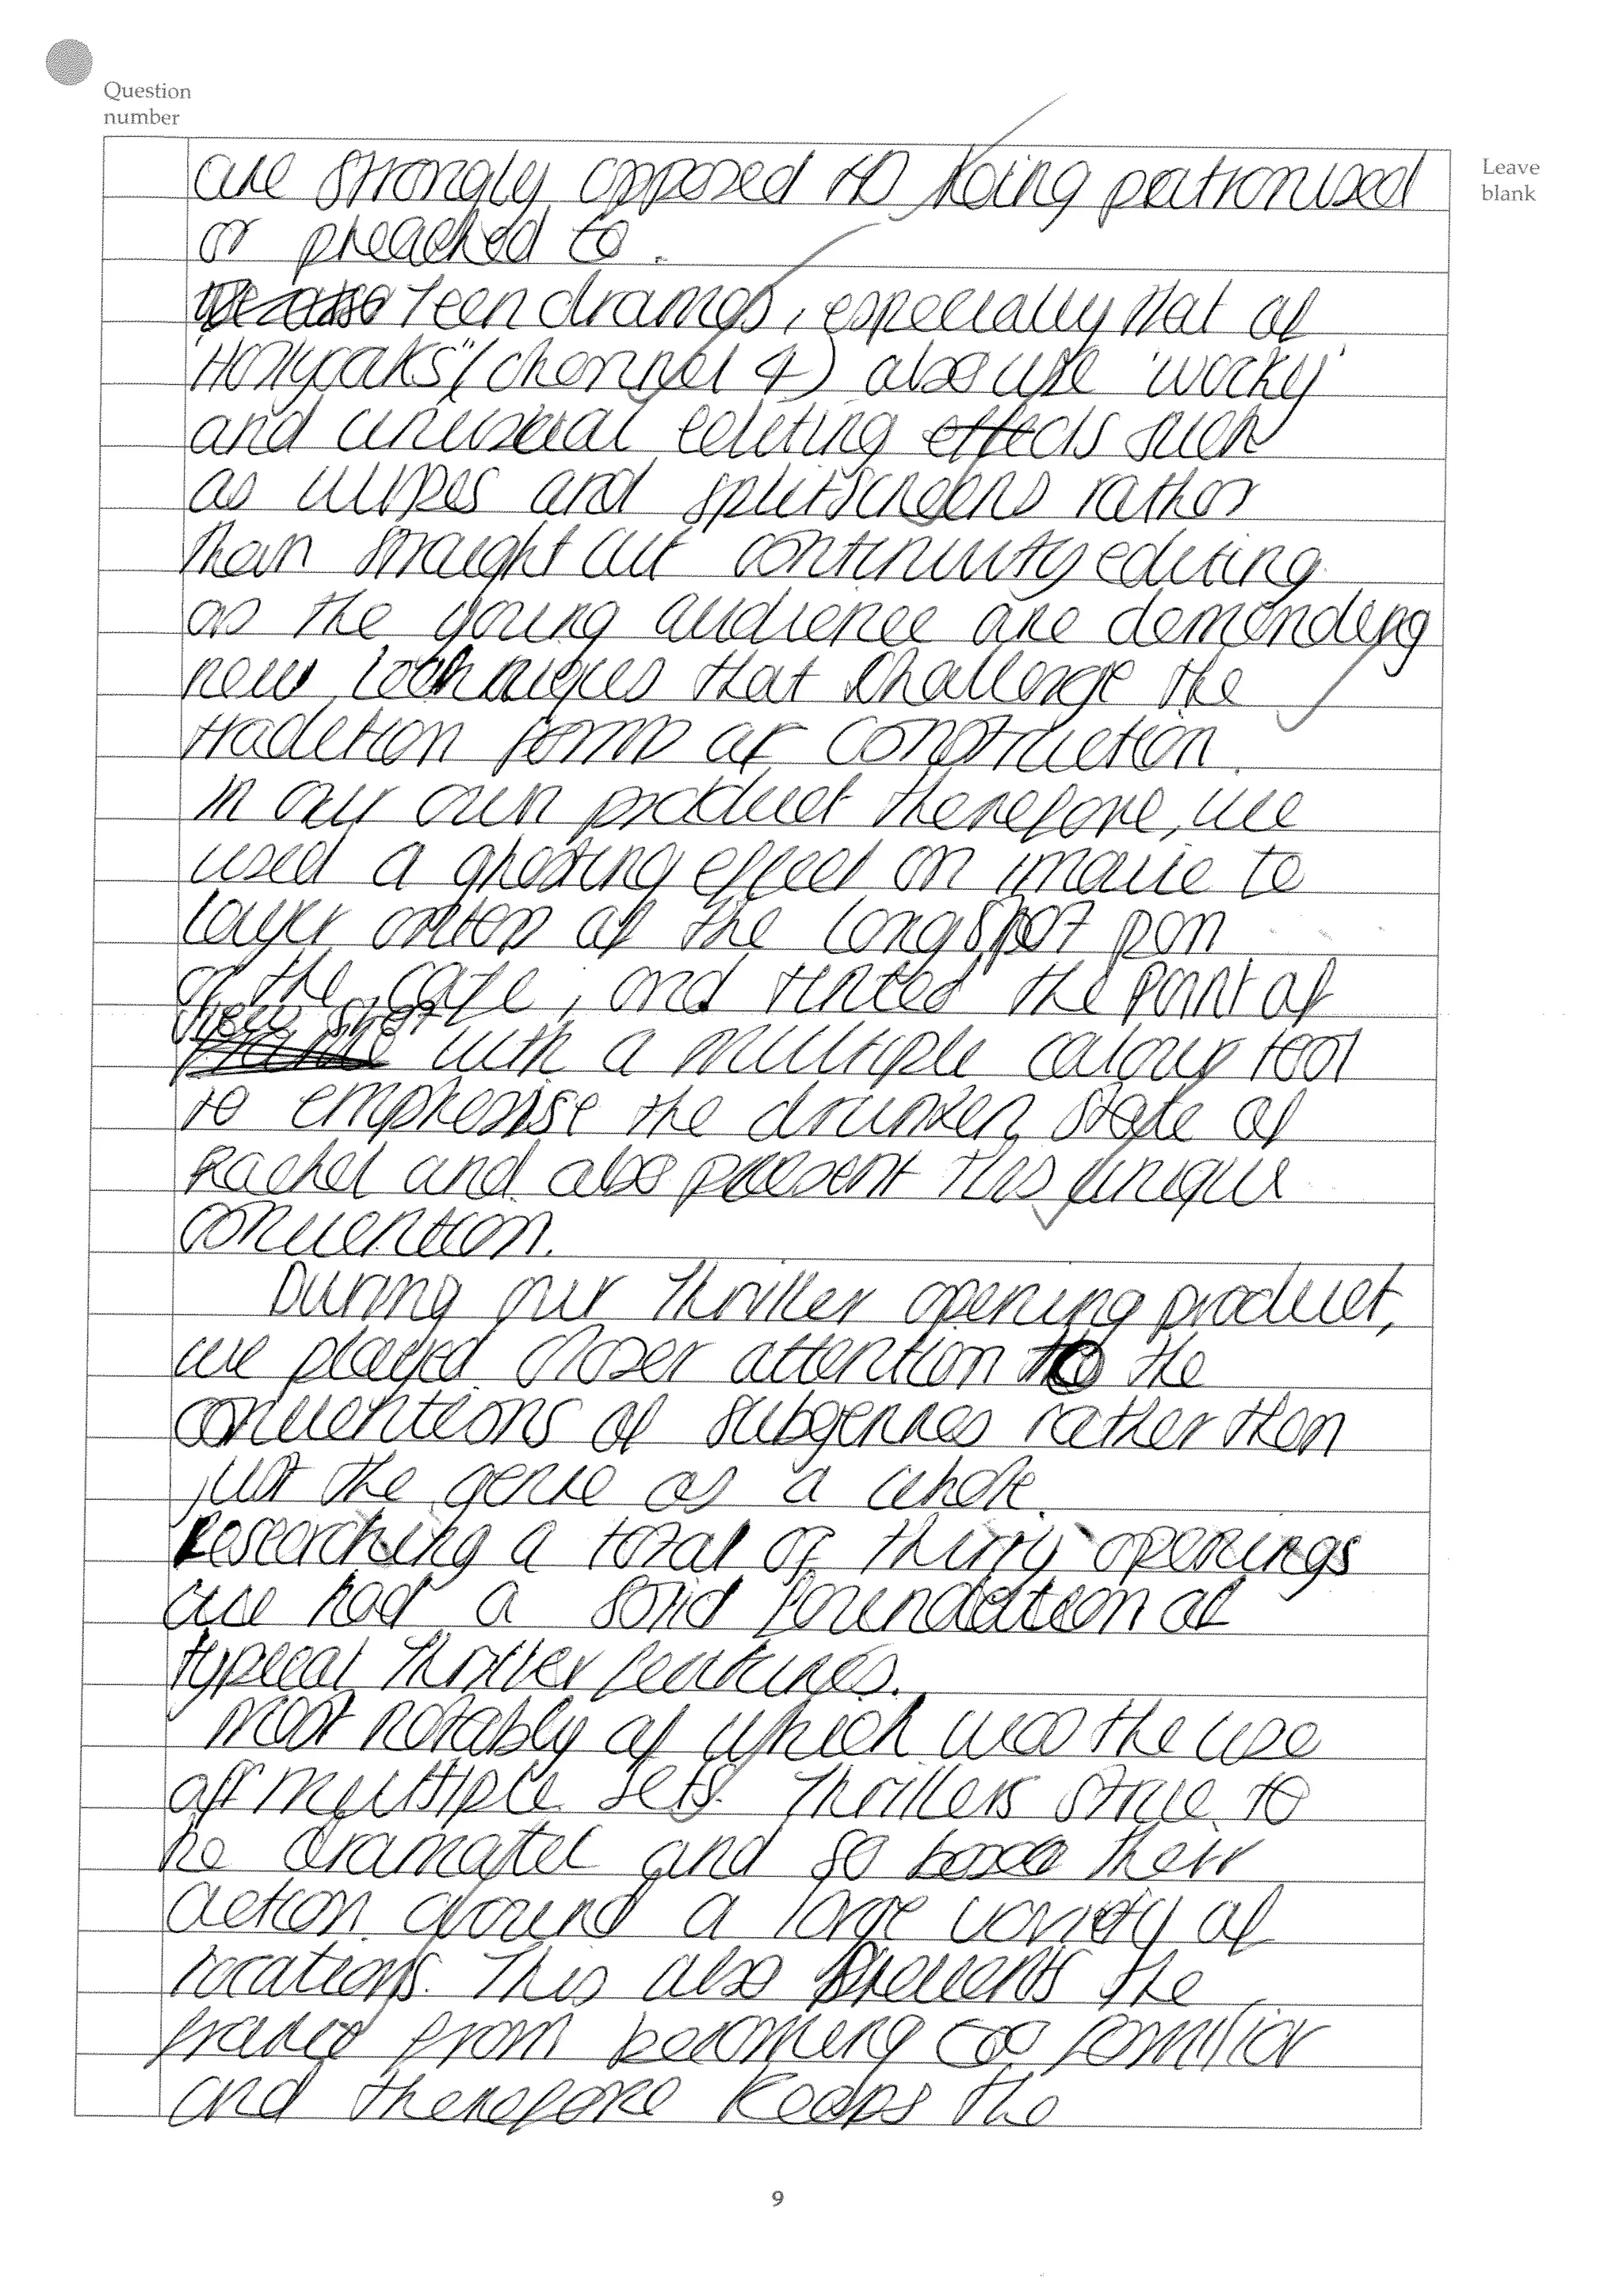 Question
number
Leave
blank
are strongly opposed to being patronised
or preached to.
We also Teen dramas, especially that of
Hollyoaks" (channel 4) also use 'wacky'
and unusual editing effects such
as wipes and splitscreens rather
than straight cut continuity editing
as the young audience are demanding
new techniques that challenge the
tradition forms of construction.
In our own product therefore, we
used a ghosting effect on imovie to
layer of the long shot pan
of the , and tinted the point of
view shot
with a multiple colour tool
to emphasise the drunken state of
Rachel and also present this unique
convention.
During our Thriller opening product,
we played closer attention to the
conventions of subgenres rather than
just the genre as a whole.
Researching a total of thirty openings
we had a solid foundation of
typical Thriller features.
Most notably of which was the use
of multiple sets. Thrillers strive to
be dramatic and so base their
action around a large variety of
locations. This also prevents the
from becoming too familiar
and therefore keeps the
9